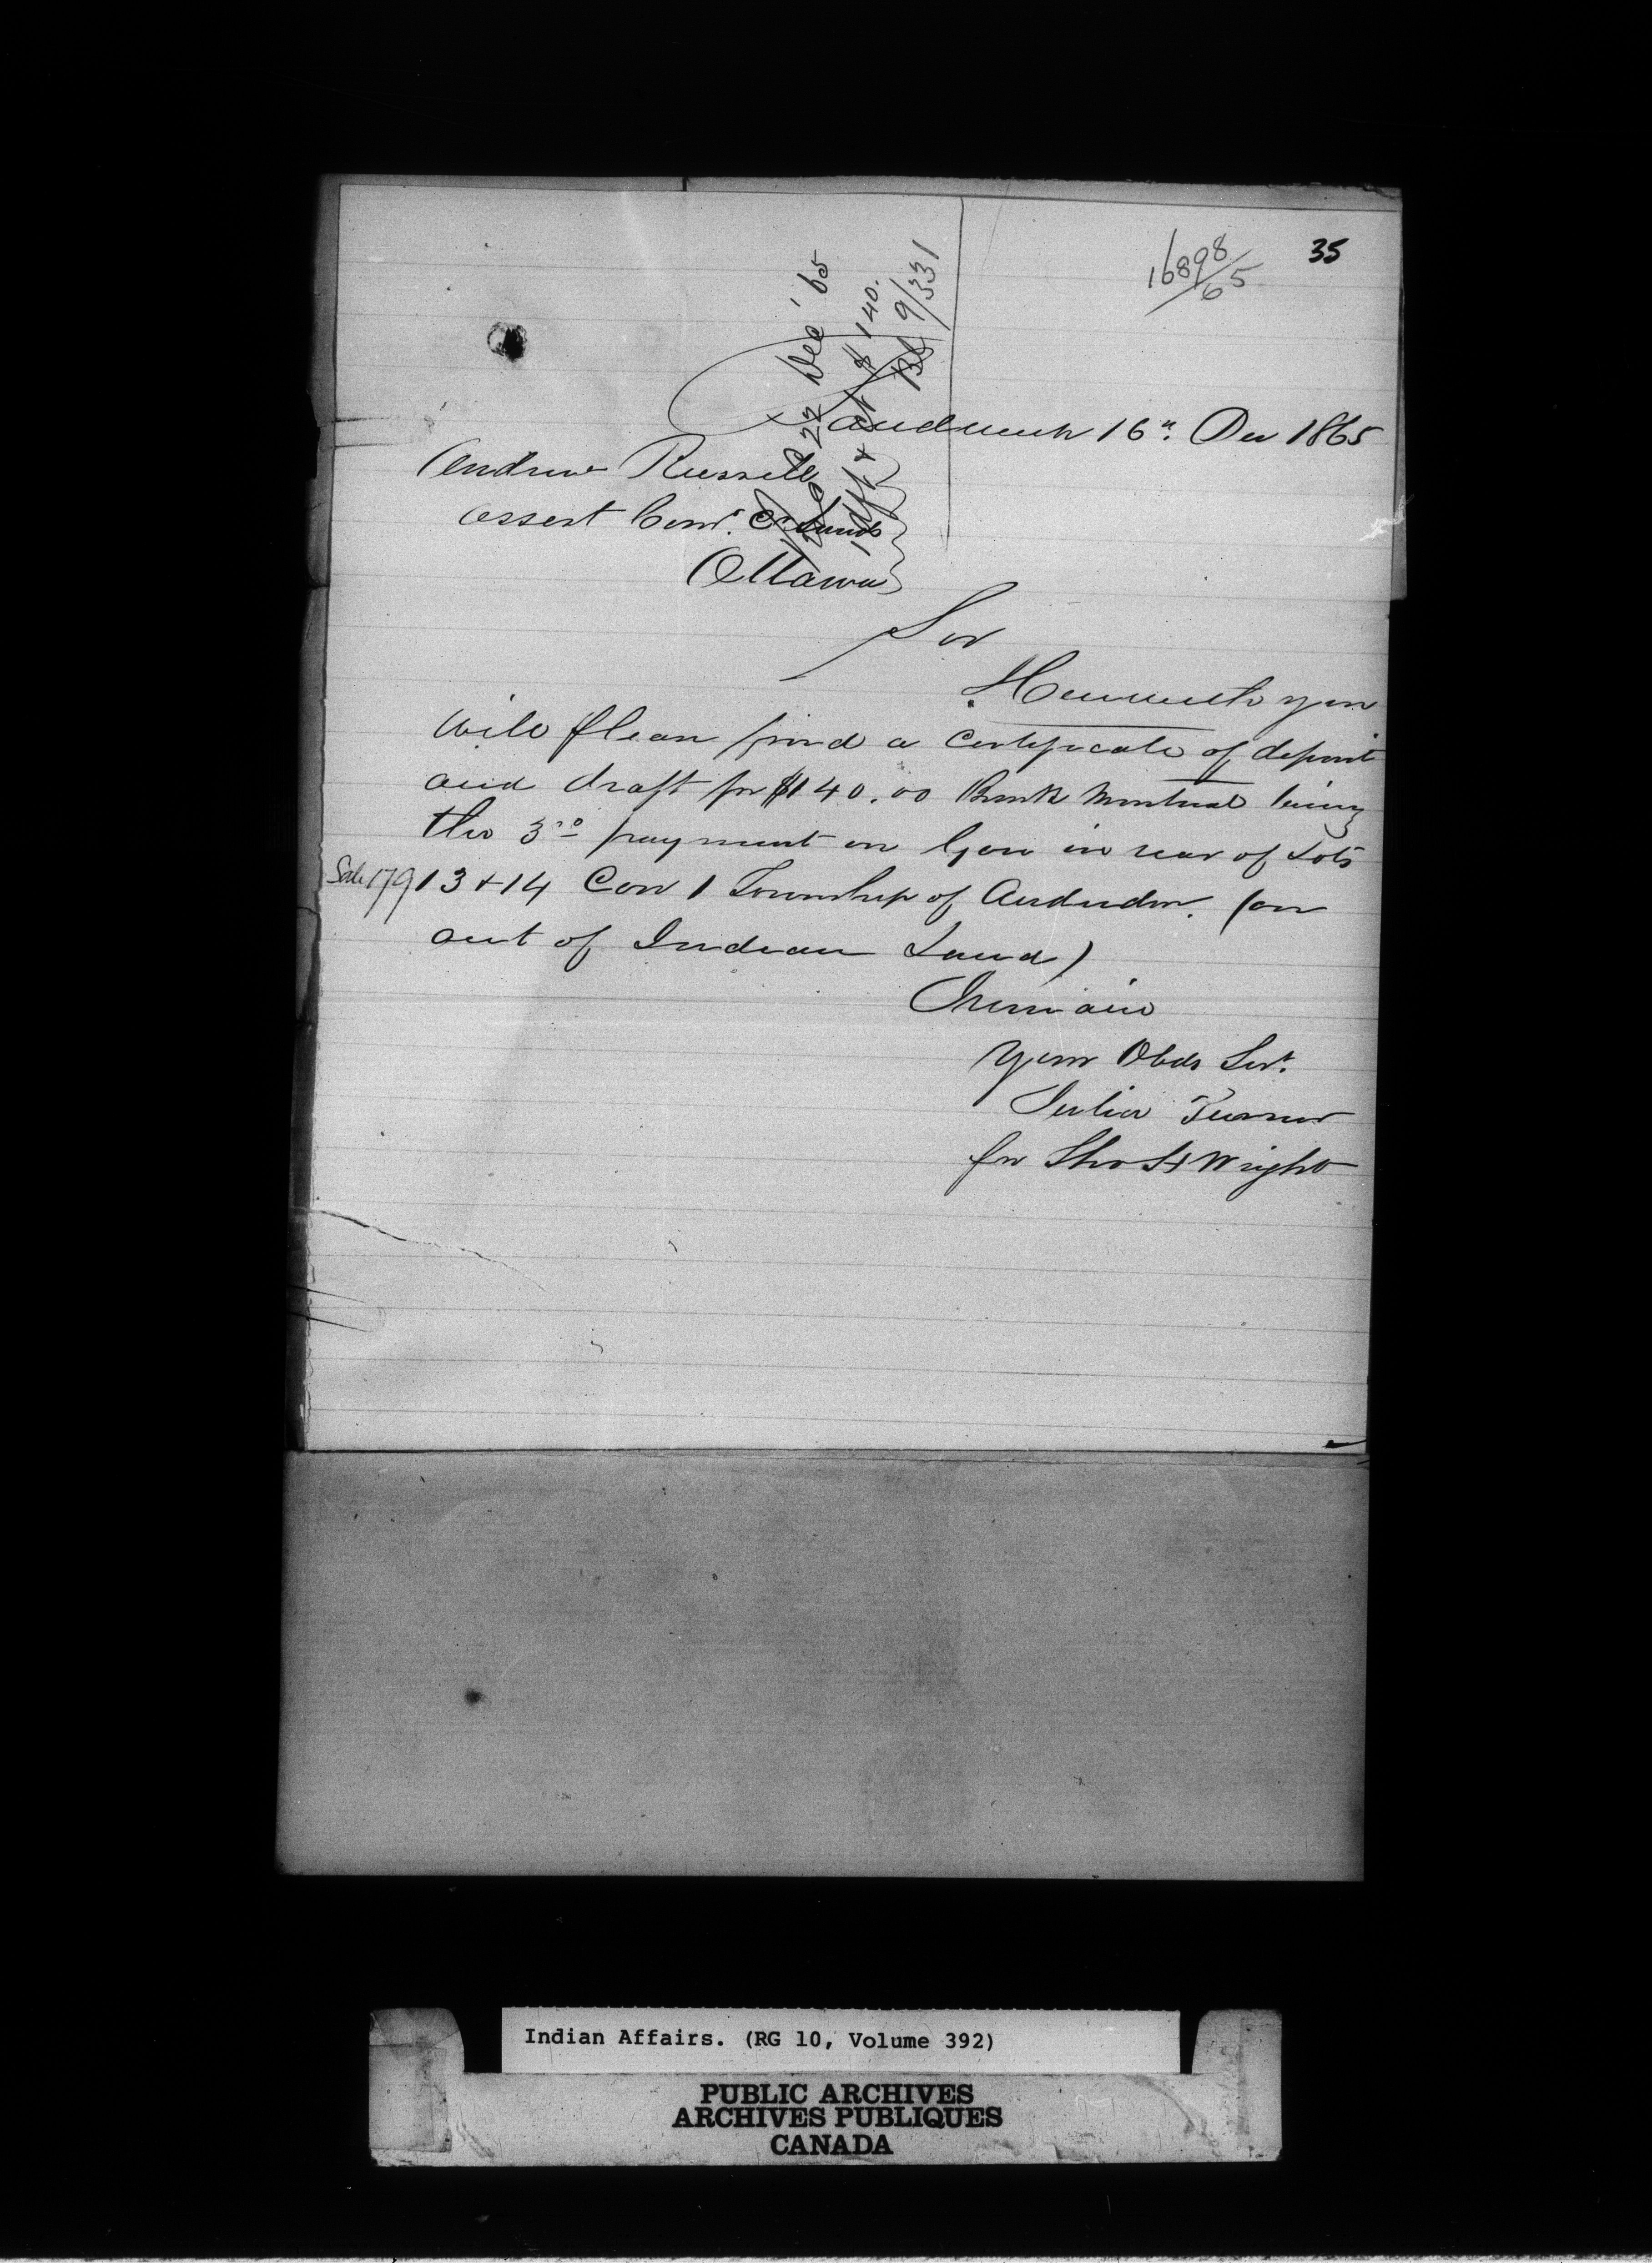 35
16898/65
22 Dec' 65
$140.
9/331
Sandwich 16". Dec 1865
Andrew Russell
Assest Comr. Cr Lands
Ottawa
Sir
Herewith you
will please find a certificate of deposit
and draft for $140.00 Bank Montreal being
the 3rd payment on Gore in rear of Lots
Sale 179 13 + 14 Con 1 Township of Anderdon. (on
out of Indian Land)
I remain
Your Obdt Svt.
Julia Turner
for Thos H Wright
Indian Affairs. (RG 10, Volume 392)
PUBLIC ARCHIVES
ARCHIVES PUBLIQUES
CANADA